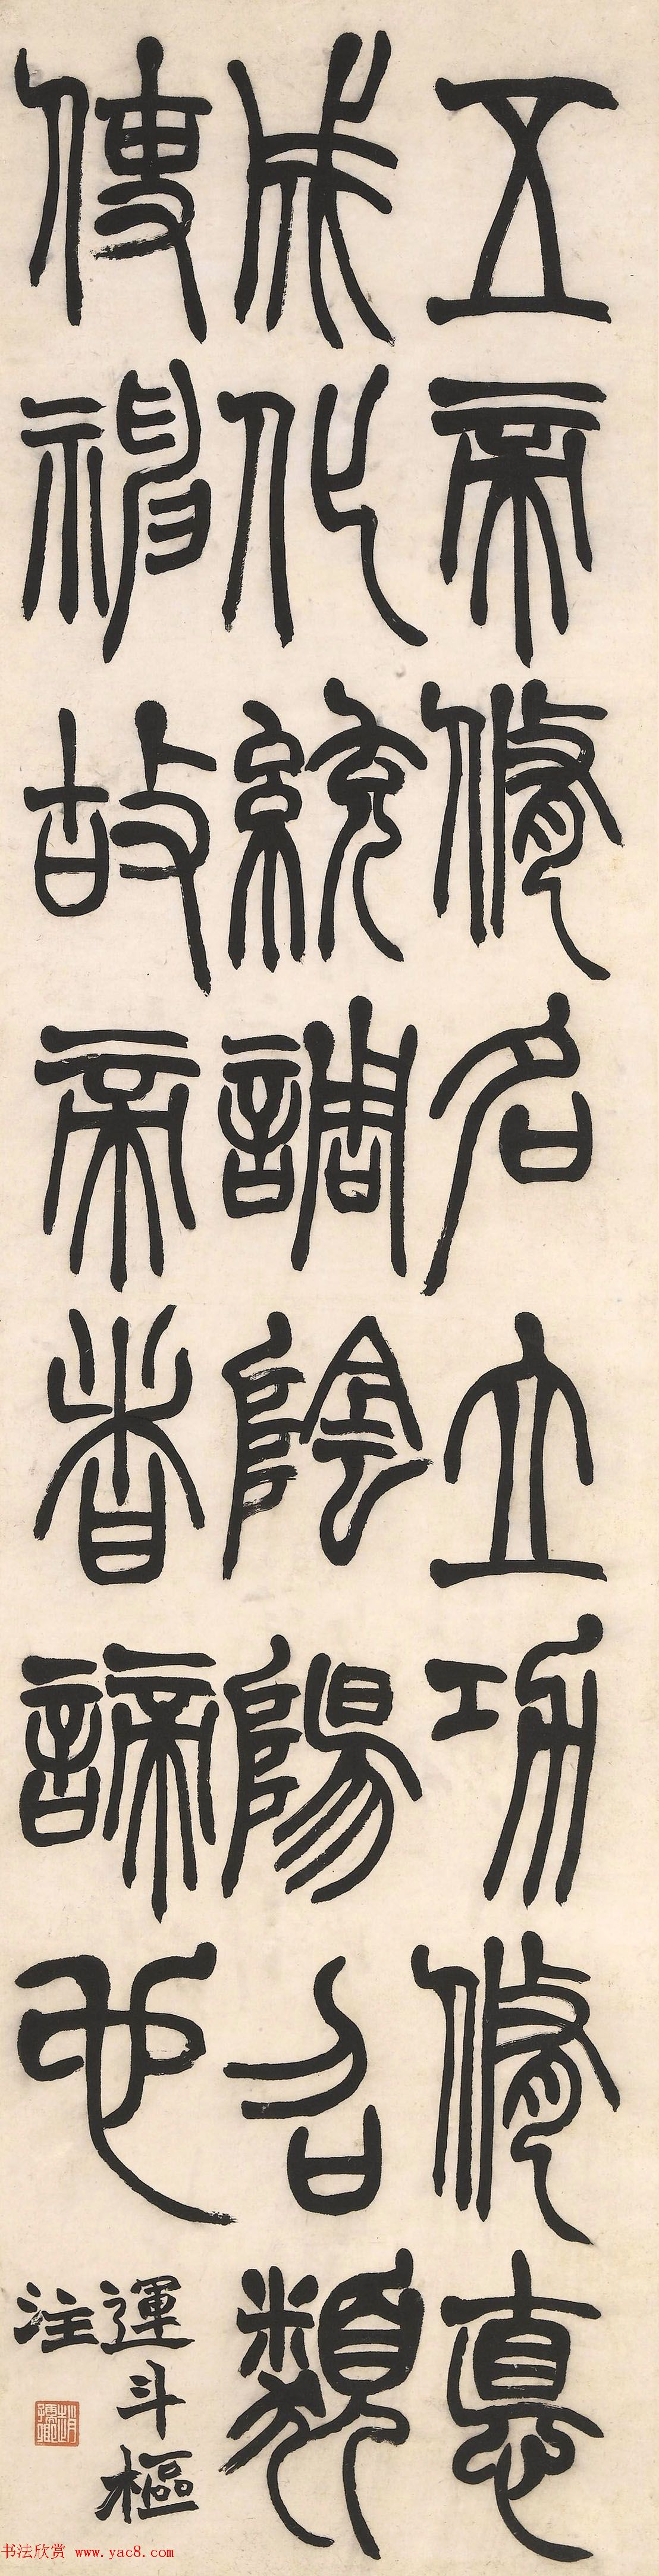 五帝修名立功修惪
成化統調陰陽召類
使神故帝者諦也
運斗樞
注
书法欣赏 www.yac8.com